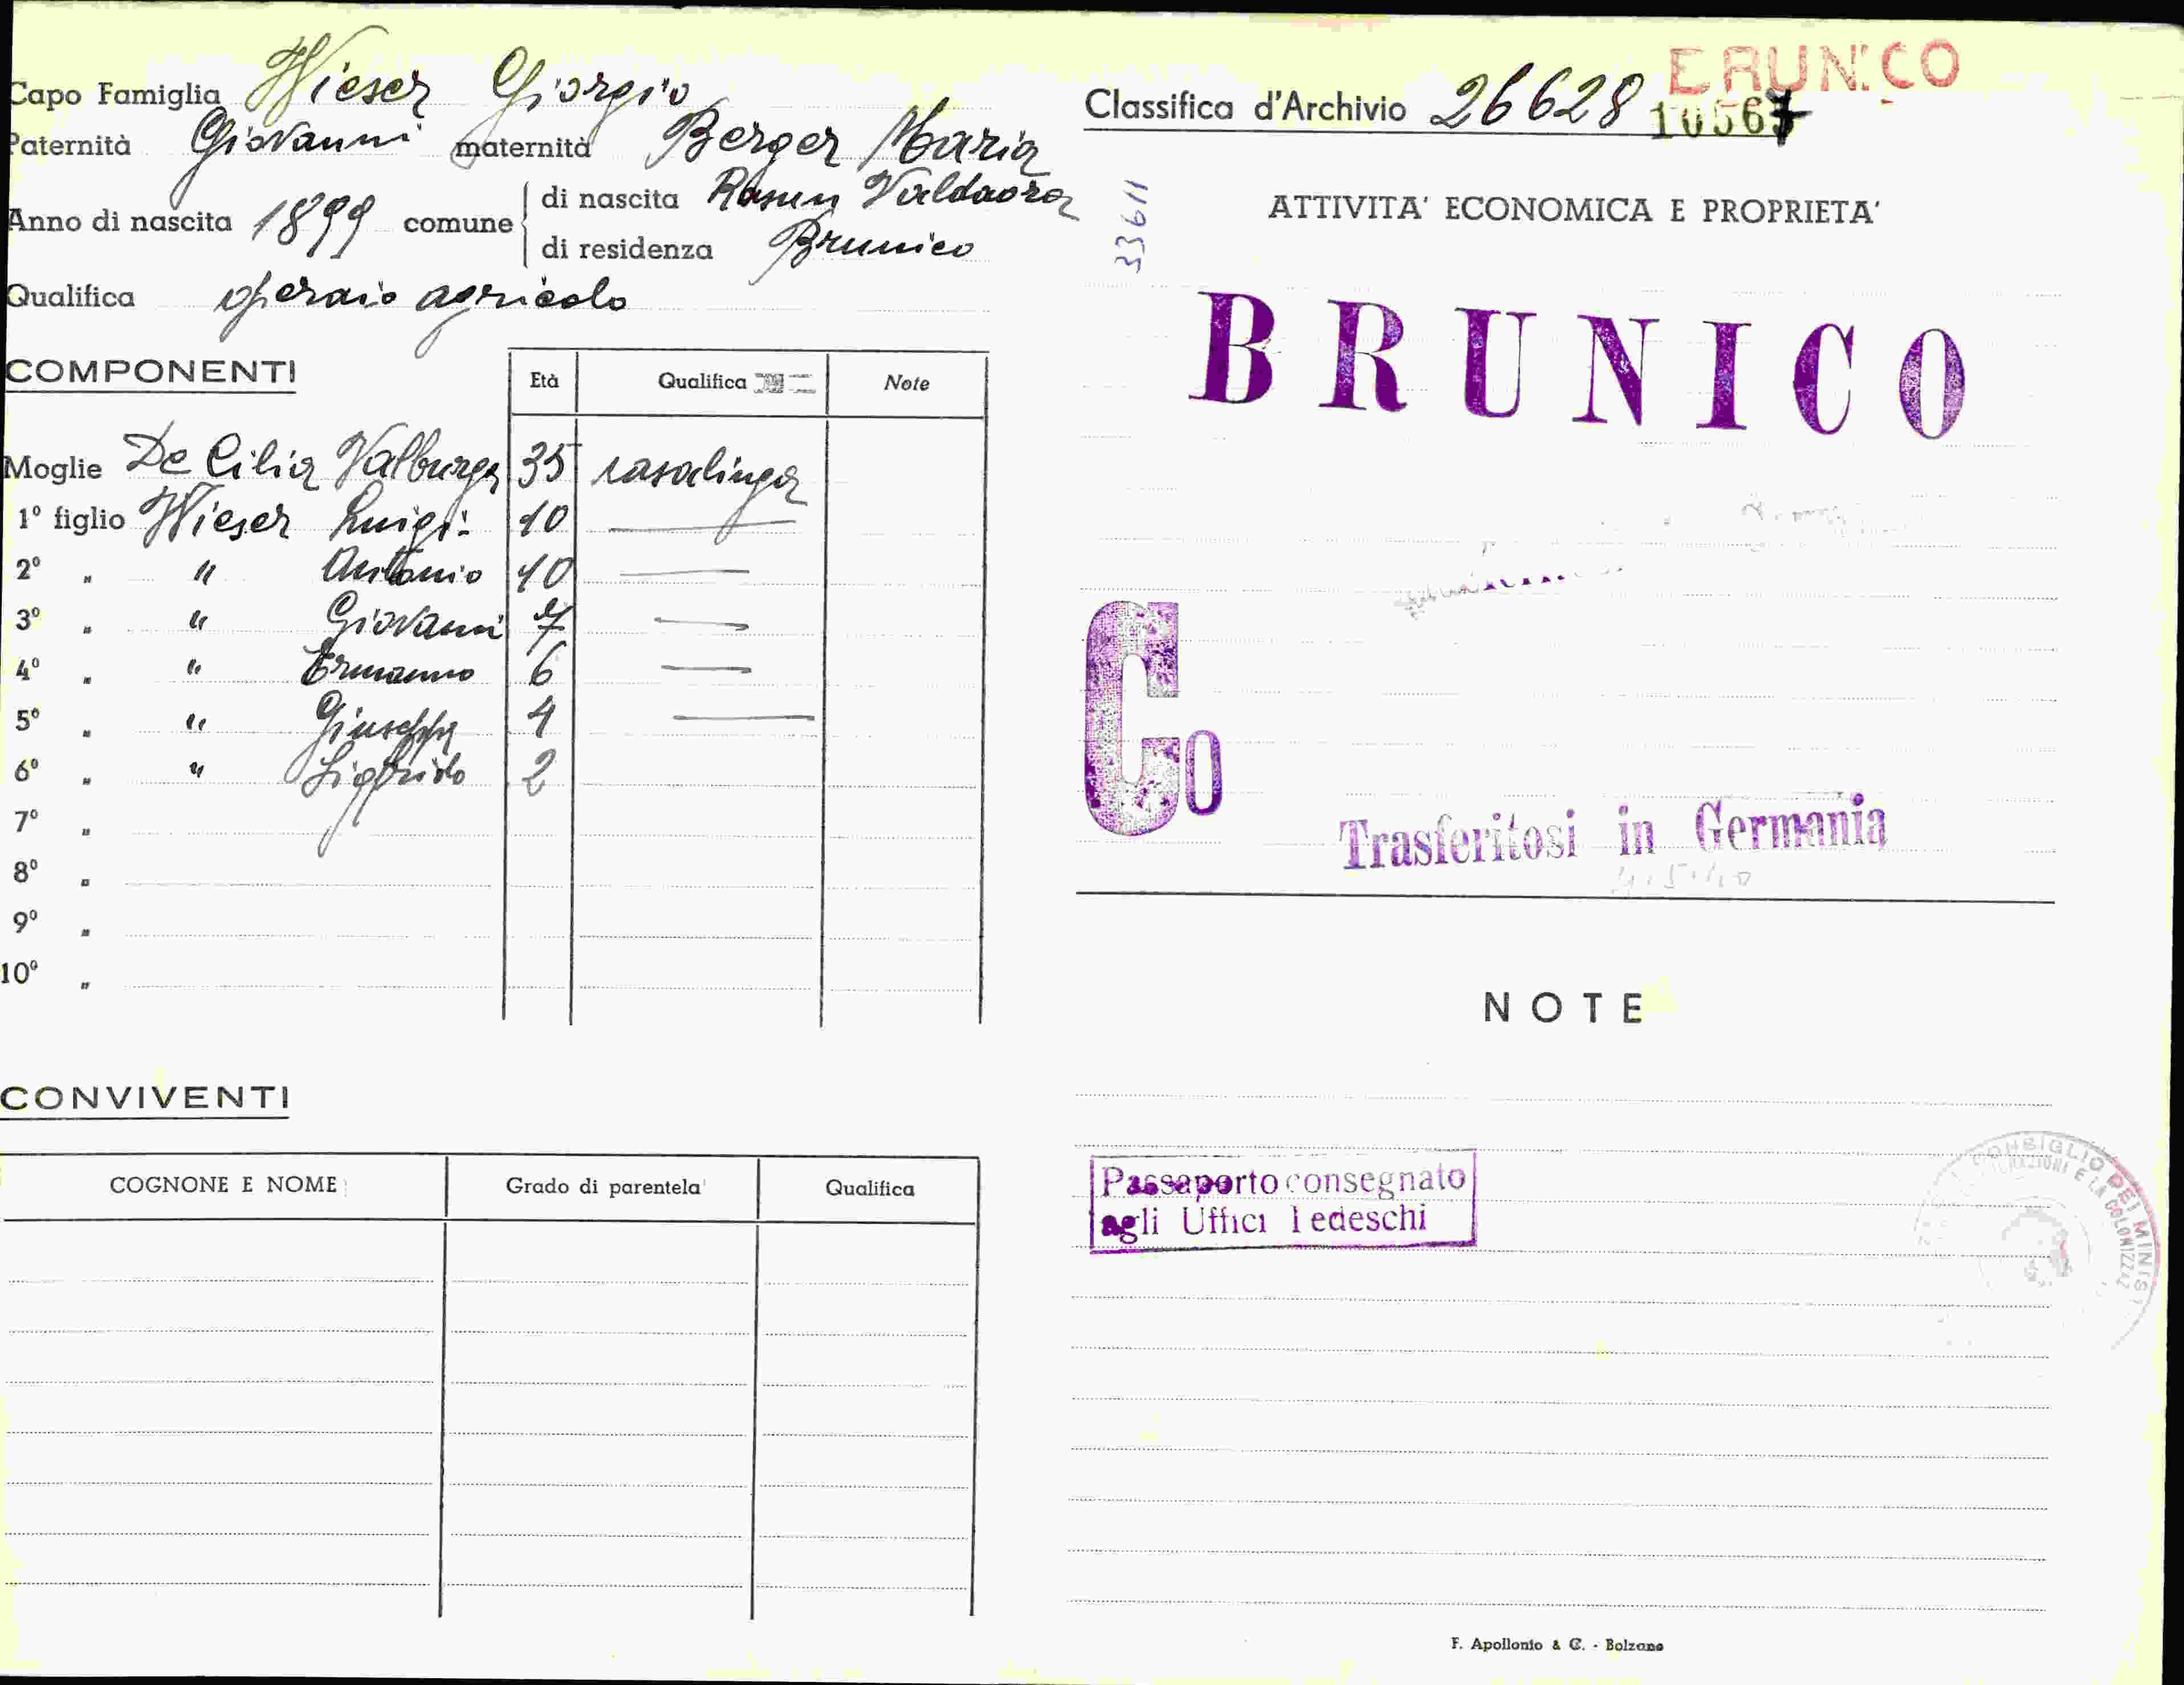 Capo Famiglia Wieser Giorgio
Paternità Giovanni maternità Berger Maria
Anno di nascita 1899 comune di nascita Rasun Valdaora
di residenza Brunico
Qualifica operaio agricolo
COMPONENTI
Età Qualifica Note
Moglie De Cilia Valburga 35 casalinga
1º figlio Wieser Luigi 10
2º „ " Antonio 10
3º „ " Giovanni 7
4º „ " Ermanno 6
5º „ " Giuseppa 4
6º „ " Sigfrido 2
7º „
8º „
9º „
10º „
CONVIVENTI
COGNONE E NOME Grado di parentela Qualifica
BRUNICO
Classifica d'Archivio 26628 10567
33611
ATTIVITA' ECONOMICA E PROPRIETA'
BRUNICO
Co
Trasferitosi in Germania
NOTE
Passaporto consegnato
agli Uffici Tedeschi
CONSIGLIO DEI MINIS
E LA COLONIZZAZ
F. Apollonio & C. - Bolzano